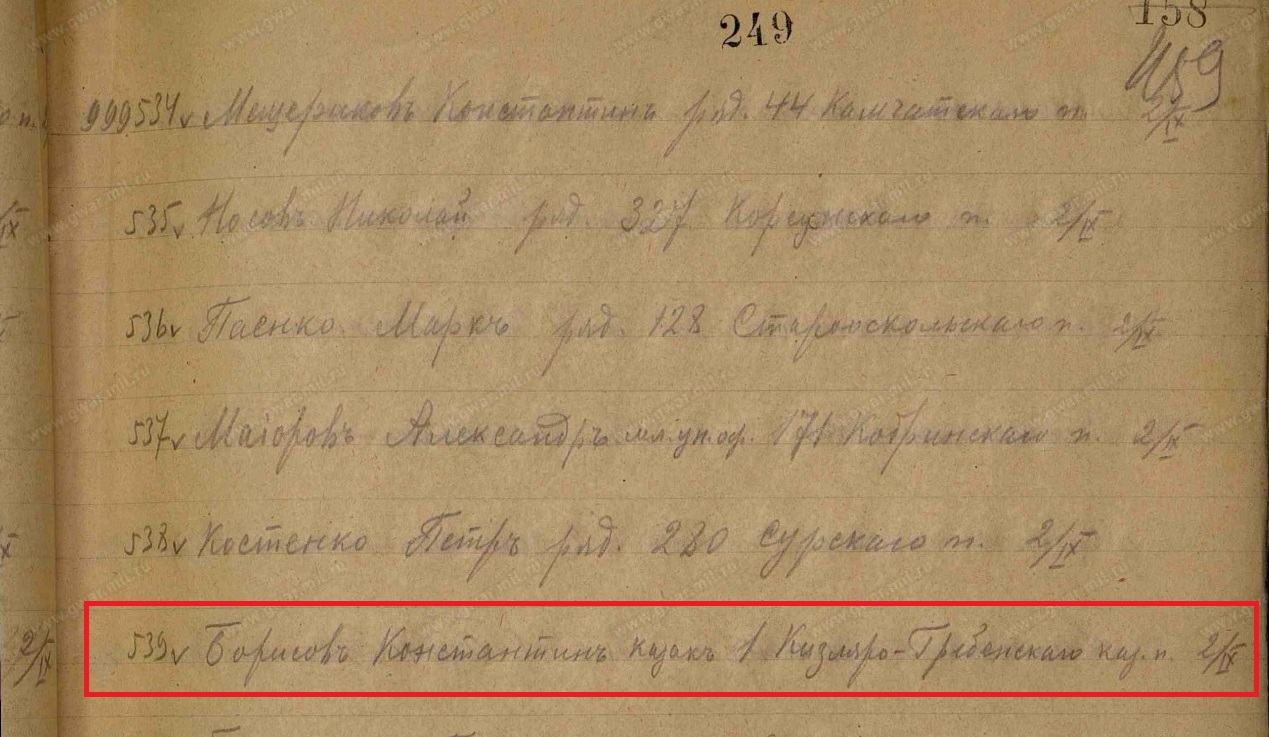 249
158
159
999534 Мещеряковъ Константинъ ряд. 44 Камчатскаго п. 2/IX
535 Носовъ Николай ряд. 327 Корсунскаго п. 2/IX
536 Паенко Маркъ ряд. 128 Старооскольскаго п. 2/IX
537 Маіоровъ Александръ мл.ун.оф. 171 Кобринскаго п. 2/IX
538 Костенко Петръ ряд. 280 Сурскаго п. 2/IX
2/IX 539 Борисовъ Константинъ казакъ 1 Кизляро-Гребенскаго каз. п. 2/IX